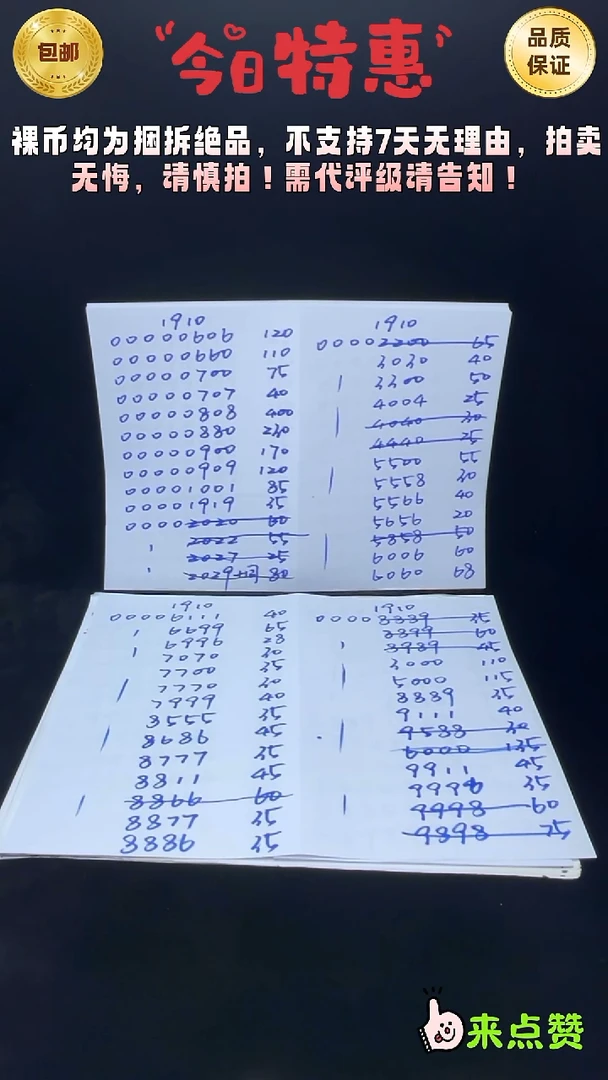 包邮
今日特惠
品质
保证
裸币均为捆拆绝品，不支持7天无理由，拍卖
无悔，请慎拍！需代评级请告知！
1910
00000606 120
00000660 110
00000700 75
00000707 40
00000808 400
00000880 230
00000900 170
00000909 120
00001001 85
00001919 35
00002020 60
2022 55
2027 25
2029 80
1910
00002200 65
3030 40
3300 50
4004 25
4040 30
4440 25
5500 55
5558 30
5566 40
5656 20
5858 50
6006 60
6060 68
1910
00006111 40
6699 65
6996 28
7070 30
7700 35
7770 30
7999 40
8555 35
8686 45
8777 35
8811 45
8866 60
8877 35
8886 35
1910
00008339 35
3399 60
3939 45
3000 110
5000 115
8889 35
9111 40
9588 30
6000 135
9911 45
9996 35
9998 60
9898 75
来点赞